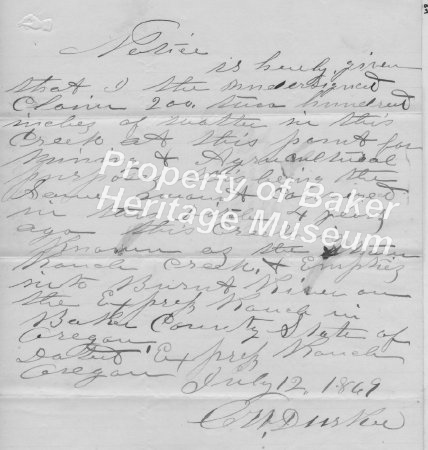 Notice
is hereby given
that I the undersigned
Claim 200 two hundred
inches of water in this
Creek at this point for
Mining & Agricultural
purposes being the
Same
in 4 years
ago this
Known as the
Ranch Creek, & Empties
into Burnt River on
the Express Ranch in
Baker County State of
Oregon
Dated Express Ranch
Oregon
July 12, 1869
C. W. Durkee
Property of Baker
Heritage Museum